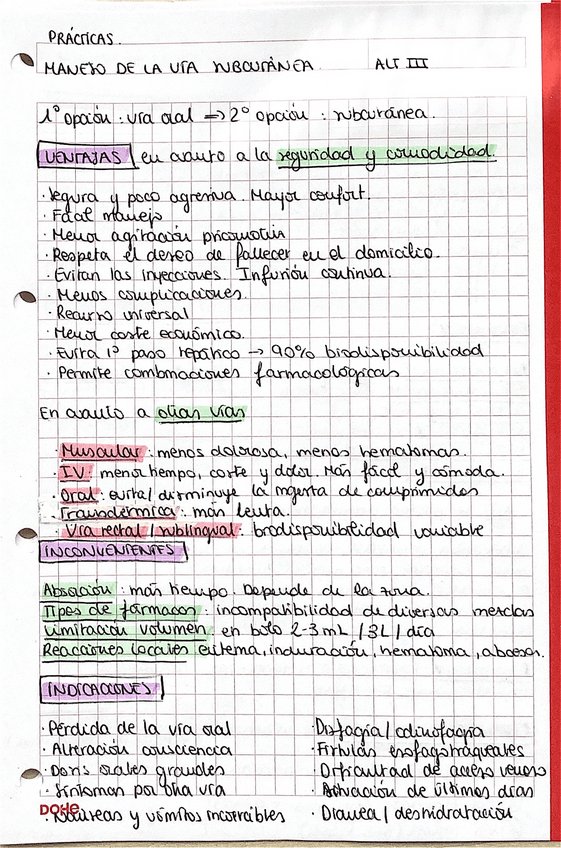 PRÁCTICAS.
MANEJO DE LA VÍA SUBCUTÁNEA. ALT III
1º opción: vía oral => 2º opción: subcutánea.
VENTAJAS en cuanto a la seguridad y comodidad.
· Segura y poco agresiva. Mayor confort.
· Fácil manejo
· Menor agitación psicomotriz
· Respeta el deseo de fallecer en el domicilio.
· Evitan las inyecciones. Infusión continua.
· Menos complicaciones.
· Recurso universal
· Menor coste económico.
· Evita 1º paso hepático → 90% biodisponibilidad
· Permite combinaciones farmacológicas
En cuanto a otras vías
· Muscular: menos dolorosa, menos hematomas.
· IV: menor tiempo, coste y dolor. Más fácil y cómoda.
· Oral: evita/disminuye la ingesta de comprimidos
· Transdérmica: más lenta.
· Vía rectal/sublingual: biodisponibilidad variable
INCONVENIENTES
Absorción: más tiempo. Depende de la zona.
Tipos de fármacos: incompatibilidad de diversas mezclas
Limitación volumen: en bolo 2-3 mL / 3L / día
Reacciones locales: eritema, induración, hematoma, absceso.
INDICACIONES
· Pérdida de la vía oral
· Alteración consciencia
· Dosis orales grandes
· Síntomas por otra vía
· Náuseas y vómitos incoercibles
· Disfagia/odinofagia
· Fístulas esofagotraqueales
· Dificultad de acceso venoso
· Actuación de últimos días
· Diarrea/deshidratación